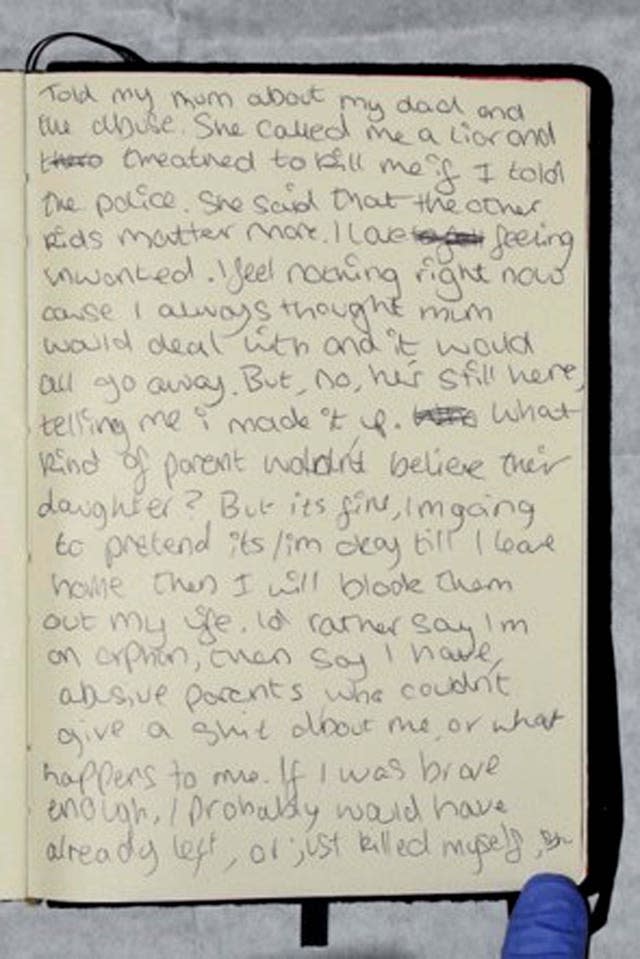 Told my mum about my dad and
the abuse. She called me a liar and
threatned to kill me if I told
the police. She said that the other
kids matter more. I love feeling
unwanted. I feel nothing right now
cause I always thought mum
would deal with and it would
all go away. But, no, he's still here,
telling me i made it up. What
kind of parent wouldn't believe their
daughter? But its fine, I'm going
to pretend its/im okay till I leave
home then I will block them
out my life. Id rather say I'm
an orphan, then say I have
abusive parents who couldn't
give a shit about me, or what
happens to me. If I was brave
enough, I probably would have
already left, or just killed myself,